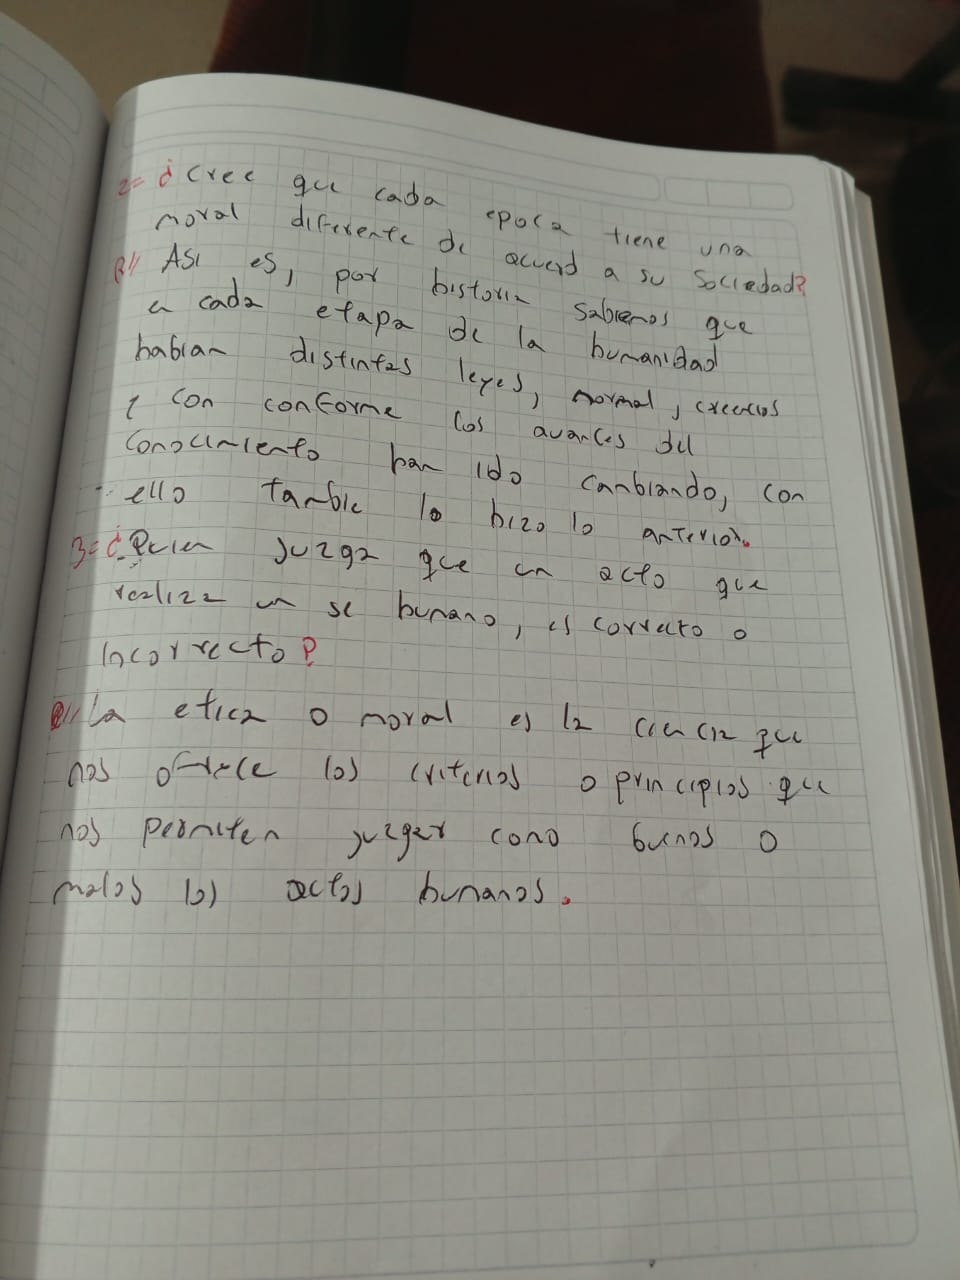 2= ¿Cree que cada epoca tiene una
moral diferente de acuerd a su sociedad?
R// Asi es, por historia sabemos que
en cada etapa de la humanidad
habian distintas leyes, normal, creencias
y con conforme los avances del
conocimiento han ido cambiando, con
ello tambie lo hizo lo anterior.
3= ¿Quien juzga que un acto que
realiza un se humano, es correcto o
incorrecto?
R// La etica o moral es la ciencia que
nos ofrece los criterios o principios que
nos permiten juzgar como bunos o
malos los actos humanos.